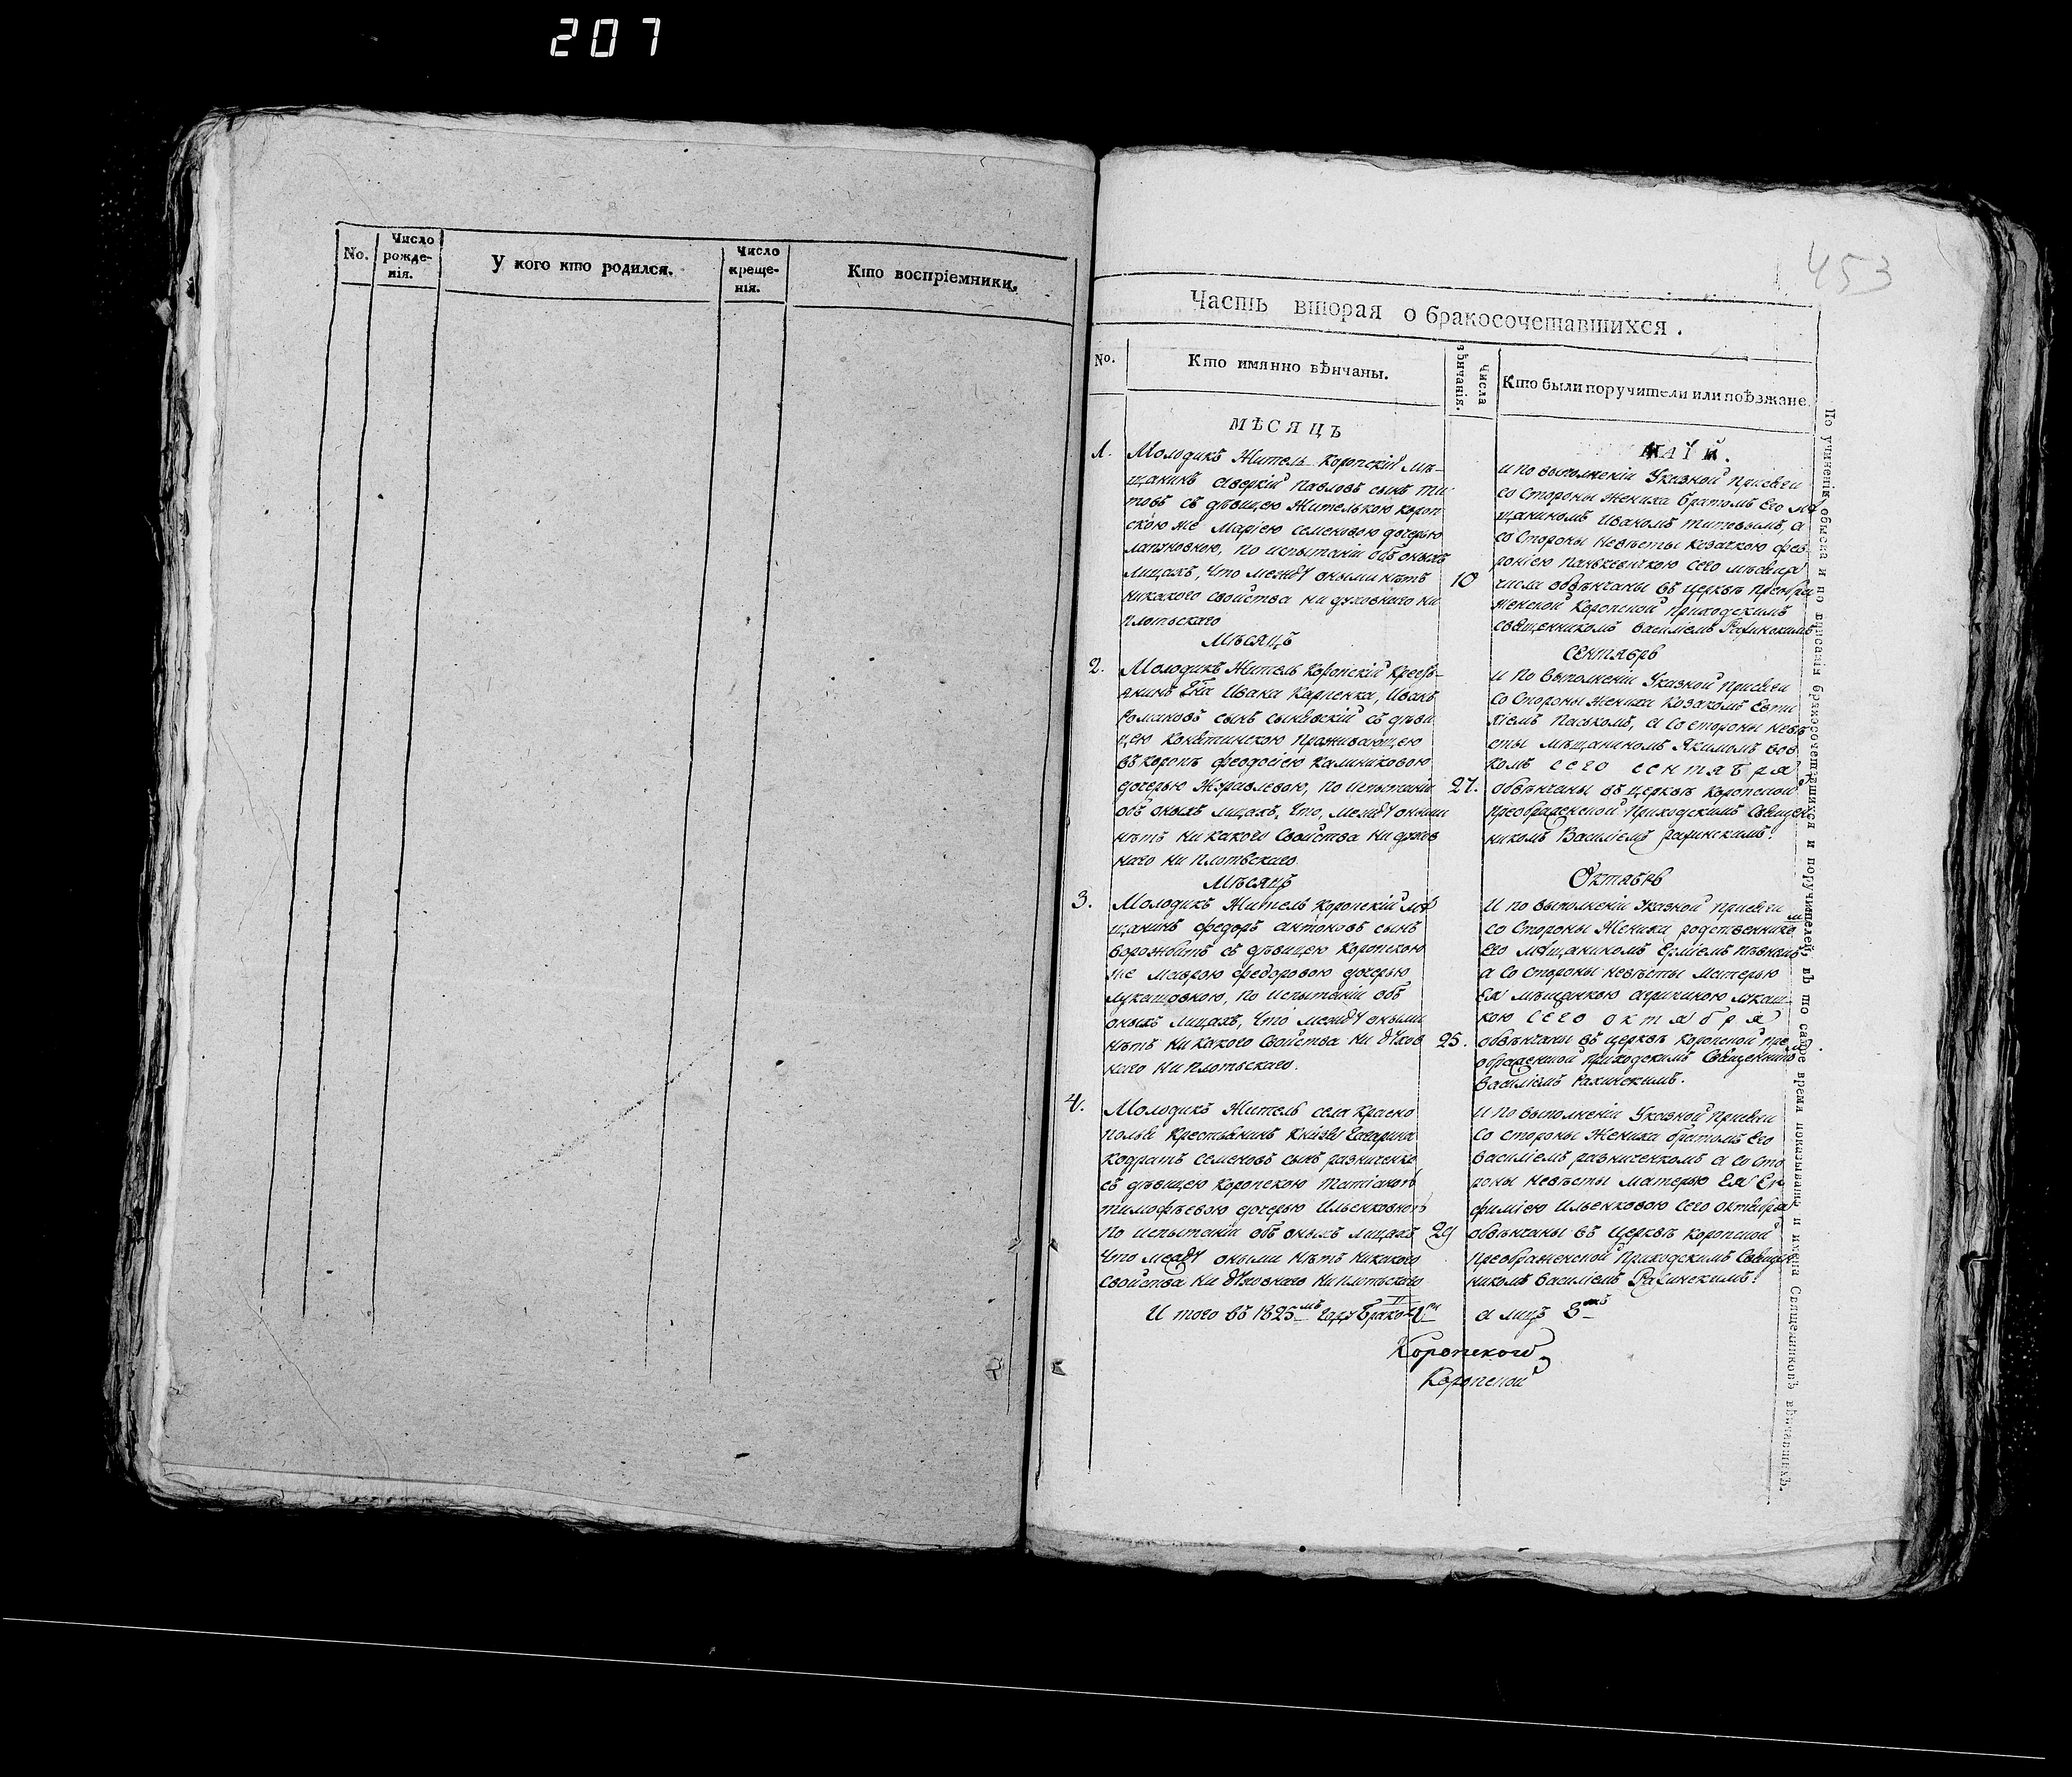 207
No.
Число рожденія.
У кого кто родился.
Число крещенія.
Кто воспріемники.
453
Часть вторая о бракосочетавшихся.
No.
Кто имянно вѣнчаны.
Числа вѣнчанія.
Кто были поручители или поѣзжане.
МѢСЯЦЪ
МАІЙ.
1.
Молодикъ Житель Коропскій мѣ-
щанинъ Аверкій Павловъ сынъ Ти
товъ съ дѣвицею Жителькою Короп
скою же Маріею Семеновою дочерью
по испытаніи объ оныхъ
лицахъ, что между оными нѣтъ
никакого свойства ни духовнаго ни
плотьскаго
10
и по выполненіи Указной Присяги
со Стороны жениха братомъ Его мѣ
щаниномъ Иваномъ Титовымъ, а
со Стороны Невѣсты Козачкою Фев
роніею сего мѣсяца
числа обвѣнчаны въ церквѣ Преобра
женской Коропской Приходскимъ
священникомъ Василіемъ
Мѣсяцъ
Сентябрь
2.
Молодикъ Житель Коропскій Кресть-
янинъ Ивана Карпенка, Иванъ
Романовъ сынъ съ дѣви
цею Проживающею
въ Коропѣ Феодосіею Калиниковою
дочерью Журавлевою, по испытаніи
объ оныхъ лицахъ, что, между оными
нѣтъ никакого Свойства ни духов
наго ни плотьскаго.
27.
и По выполненіи Указной Присяги
со Стороны Жениха Козакомъ Евти
хіемъ Паськомъ, а со стороны Невѣ
сты мѣщаниномъ Якимомъ Вов
комъ сего сентября
обвѣнчаны въ церквѣ Коропской
Преображенской Приходскимъ Священ
никомъ Василіемъ
Мѣсяцъ
Октябрь
3.
Молодикъ Житель Коропскій мѣ
щанинъ Федоръ Антоновъ сынъ
Ворожбитъ съ дѣвицею Коропскою
же Маврою Федоровою дочерью
Лукашовною, по испытаніи объ
оныхъ лицахъ, что между оными
нѣтъ никакого Свойства ни духов
наго ни плотьскаго.
25.
И по выполненіи Указной Присяги
со Стороны Жениха родственникомъ
Его мѣщаниномъ Ерміемъ
а со стороны невѣсты матерью
Ея мѣщанкою Агрипиною Лукаш
кою сего октября
обвѣнчаны въ церквѣ Коропской Пре
ображенской Приходскимъ Священникомъ
Василіемъ
4.
Молодикъ Житель села Красно
полья Крестьянинъ Князя Гагарина
Кодратъ Семеновъ сынъ Разниченко
съ дѣвицею Коропскою Татіаною
Тимофѣевою дочерью Ильенковною
По испытаніи объ оныхъ лицахъ
что между оными нѣтъ никакого
свойства ни духовнаго ни плотьскаго
29
и по выполненіи Указной Присяги
со стороны Жениха братомъ Его
Василіемъ Разниченкомъ а со сто
роны невѣсты матерью Ея Ев
фиміею Ильенковою сего октября
обвѣнчаны въ Церквѣ Коропской
Преображенской Приходскимъ Священ
никомъ Василіемъ
И того въ 1825мъ Году Браковъ 4
а лицъ 8мъ
Коропского
Коропской
По учиненіи обыска и по вписаніи бракосочетавшихся и поручителей, въ то самое время показывать и имена Священниковъ вѣнчавшихъ.